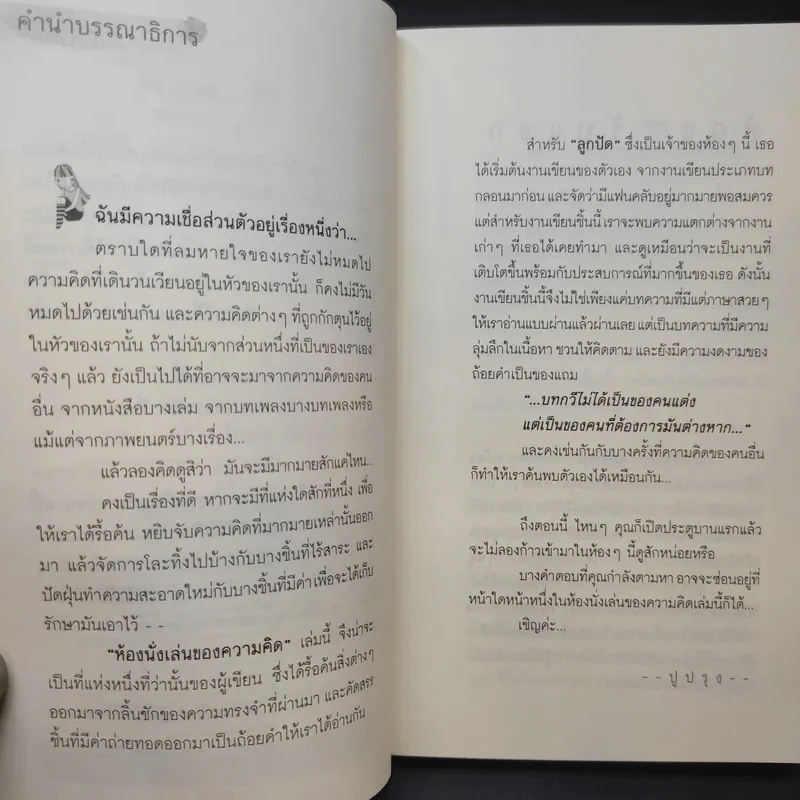 คำนำบรรณาธิการ
ฉันมีความเชื่อส่วนตัวอยู่เรื่องหนึ่งว่า...
ตราบใดที่ลมหายใจของเรายังไม่หมดไป
ความคิดที่เดินวนเวียนอยู่ในหัวของเรานั้น ก็คงไม่มีวัน
หมดไปด้วยเช่นกัน และความคิดต่างๆ ที่ถูกกักตุนไว้อยู่
ในหัวของเรานั้น ถ้าไม่นับจากส่วนหนึ่งที่เป็นของเราเอง
จริงๆ แล้ว ยังเป็นไปได้ที่อาจจะมาจากความคิดของคน
อื่น จากหนังสือบางเล่ม จากบทเพลงบางบทเพลงหรือ
แม้แต่จากภาพยนตร์บางเรื่อง...
แล้วลองคิดดูสิว่า มันจะมีมากมายสักแค่ไหน...
คงเป็นเรื่องที่ดี หากจะมีที่แห่งใดสักที่หนึ่ง เพื่อ
ให้เราได้รื้อค้น หยิบจับความคิดที่มากมายเหล่านั้นออก
มา แล้วจัดการโละทิ้งไปบ้างกับบางชิ้นที่ไร้สาระ และ
ปัดฝุ่นทำความสะอาดใหม่กับบางชิ้นที่มีค่าเพื่อจะได้เก็บ
รักษามันเอาไว้ - -
"ห้องนั่งเล่นของความคิด" เล่มนี้ จึงน่าจะ
เป็นที่แห่งหนึ่งที่ว่านั้นของผู้เขียน ซึ่งได้รื้อค้นสิ่งต่างๆ
ออกมาจากลิ้นชักของความทรงจำที่ผ่านมา และคัดสรร
ชิ้นที่มีค่าถ่ายทอดออกมาเป็นถ้อยคำให้เราได้อ่านกัน
สำหรับ "ลูกปัด" ซึ่งเป็นเจ้าของห้องๆ นี้ เธอ
ได้เริ่มต้นงานเขียนของตัวเอง จากงานเขียนประเภทบท
กลอนมาก่อน และจัดว่ามีแฟนคลับอยู่มากมายพอสมควร
แต่สำหรับงานเขียนชิ้นนี้ เราจะพบความแตกต่างจากงาน
เก่าๆ ที่เธอได้เคยทำมา และดูเหมือนว่าจะเป็นงานที่
เติบโตขึ้นพร้อมกับประสบการณ์ที่มากขึ้นของเธอ ดังนั้น
งานเขียนชิ้นนี้จึงไม่ใช่เพียงแค่บทความที่มีแต่ภาษาสวยๆ
ให้เราอ่านแบบผ่านแล้วผ่านเลย แต่เป็นบทความที่มีความ
ลุ่มลึกในเนื้อหา ชวนให้คิดตาม และยังมีความงดงามของ
ถ้อยคำเป็นของแถม
"...บทกวีไม่ได้เป็นของคนแต่ง
แต่เป็นของคนที่ต้องการมันต่างหาก..."
และคงเช่นกันกับบางครั้งที่ความคิดของคนอื่น
ก็ทำให้เราค้นพบตัวเองได้เหมือนกัน...
ถึงตอนนี้ ไหนๆ คุณก็เปิดประตูบานแรกแล้ว
จะไม่ลองก้าวเข้ามาในห้องๆ นี้ดูสักหน่อยหรือ
บางคำตอบที่คุณกำลังตามหา อาจจะซ่อนอยู่ที่
หน้าใดหน้าหนึ่งในห้องนั่งเล่นของความคิดเล่มนี้ก็ได้...
เชิญค่ะ...
- - ปูปรุง - -